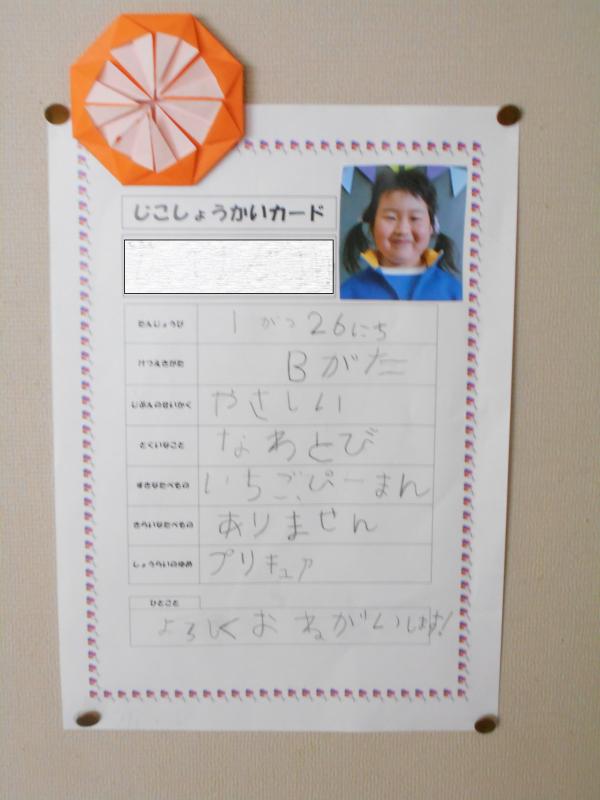 じこしょうかいカード
たんじょうび 1がつ26にち
けつえきがた Bがた
じぶんのせいかく やさしい
とくいなこと なわとび
すきなたべもの いちご、ぴーまん
きらいなたべもの ありません
しょうらいのゆめ プリキュア
ひとこと
よろしくおねがいします!